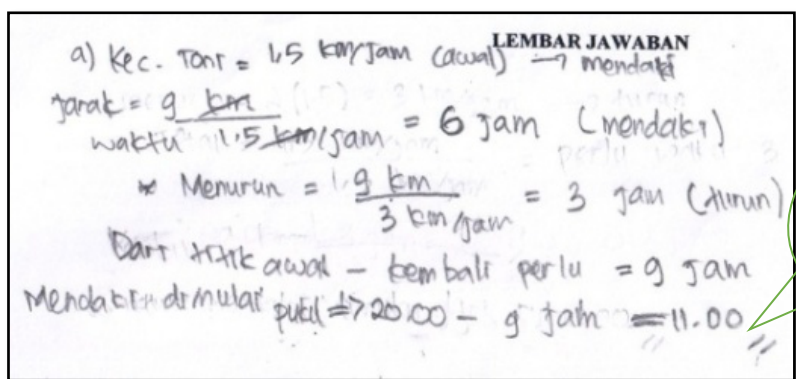 LEMBAR JAWABAN
a) Kec. Toni = 1,5 km/Jam (awal) → mendaki
Jarak = 9 km
waktu 1.5 km/jam = 6 Jam (mendaki)
* Menurun = 9 km
3 km/jam = 3 jam (turun)
Dari titik awal - kembali perlu = 9 Jam
Mendaki dimulai pukul => 20.00 - 9 jam = 11.00 //